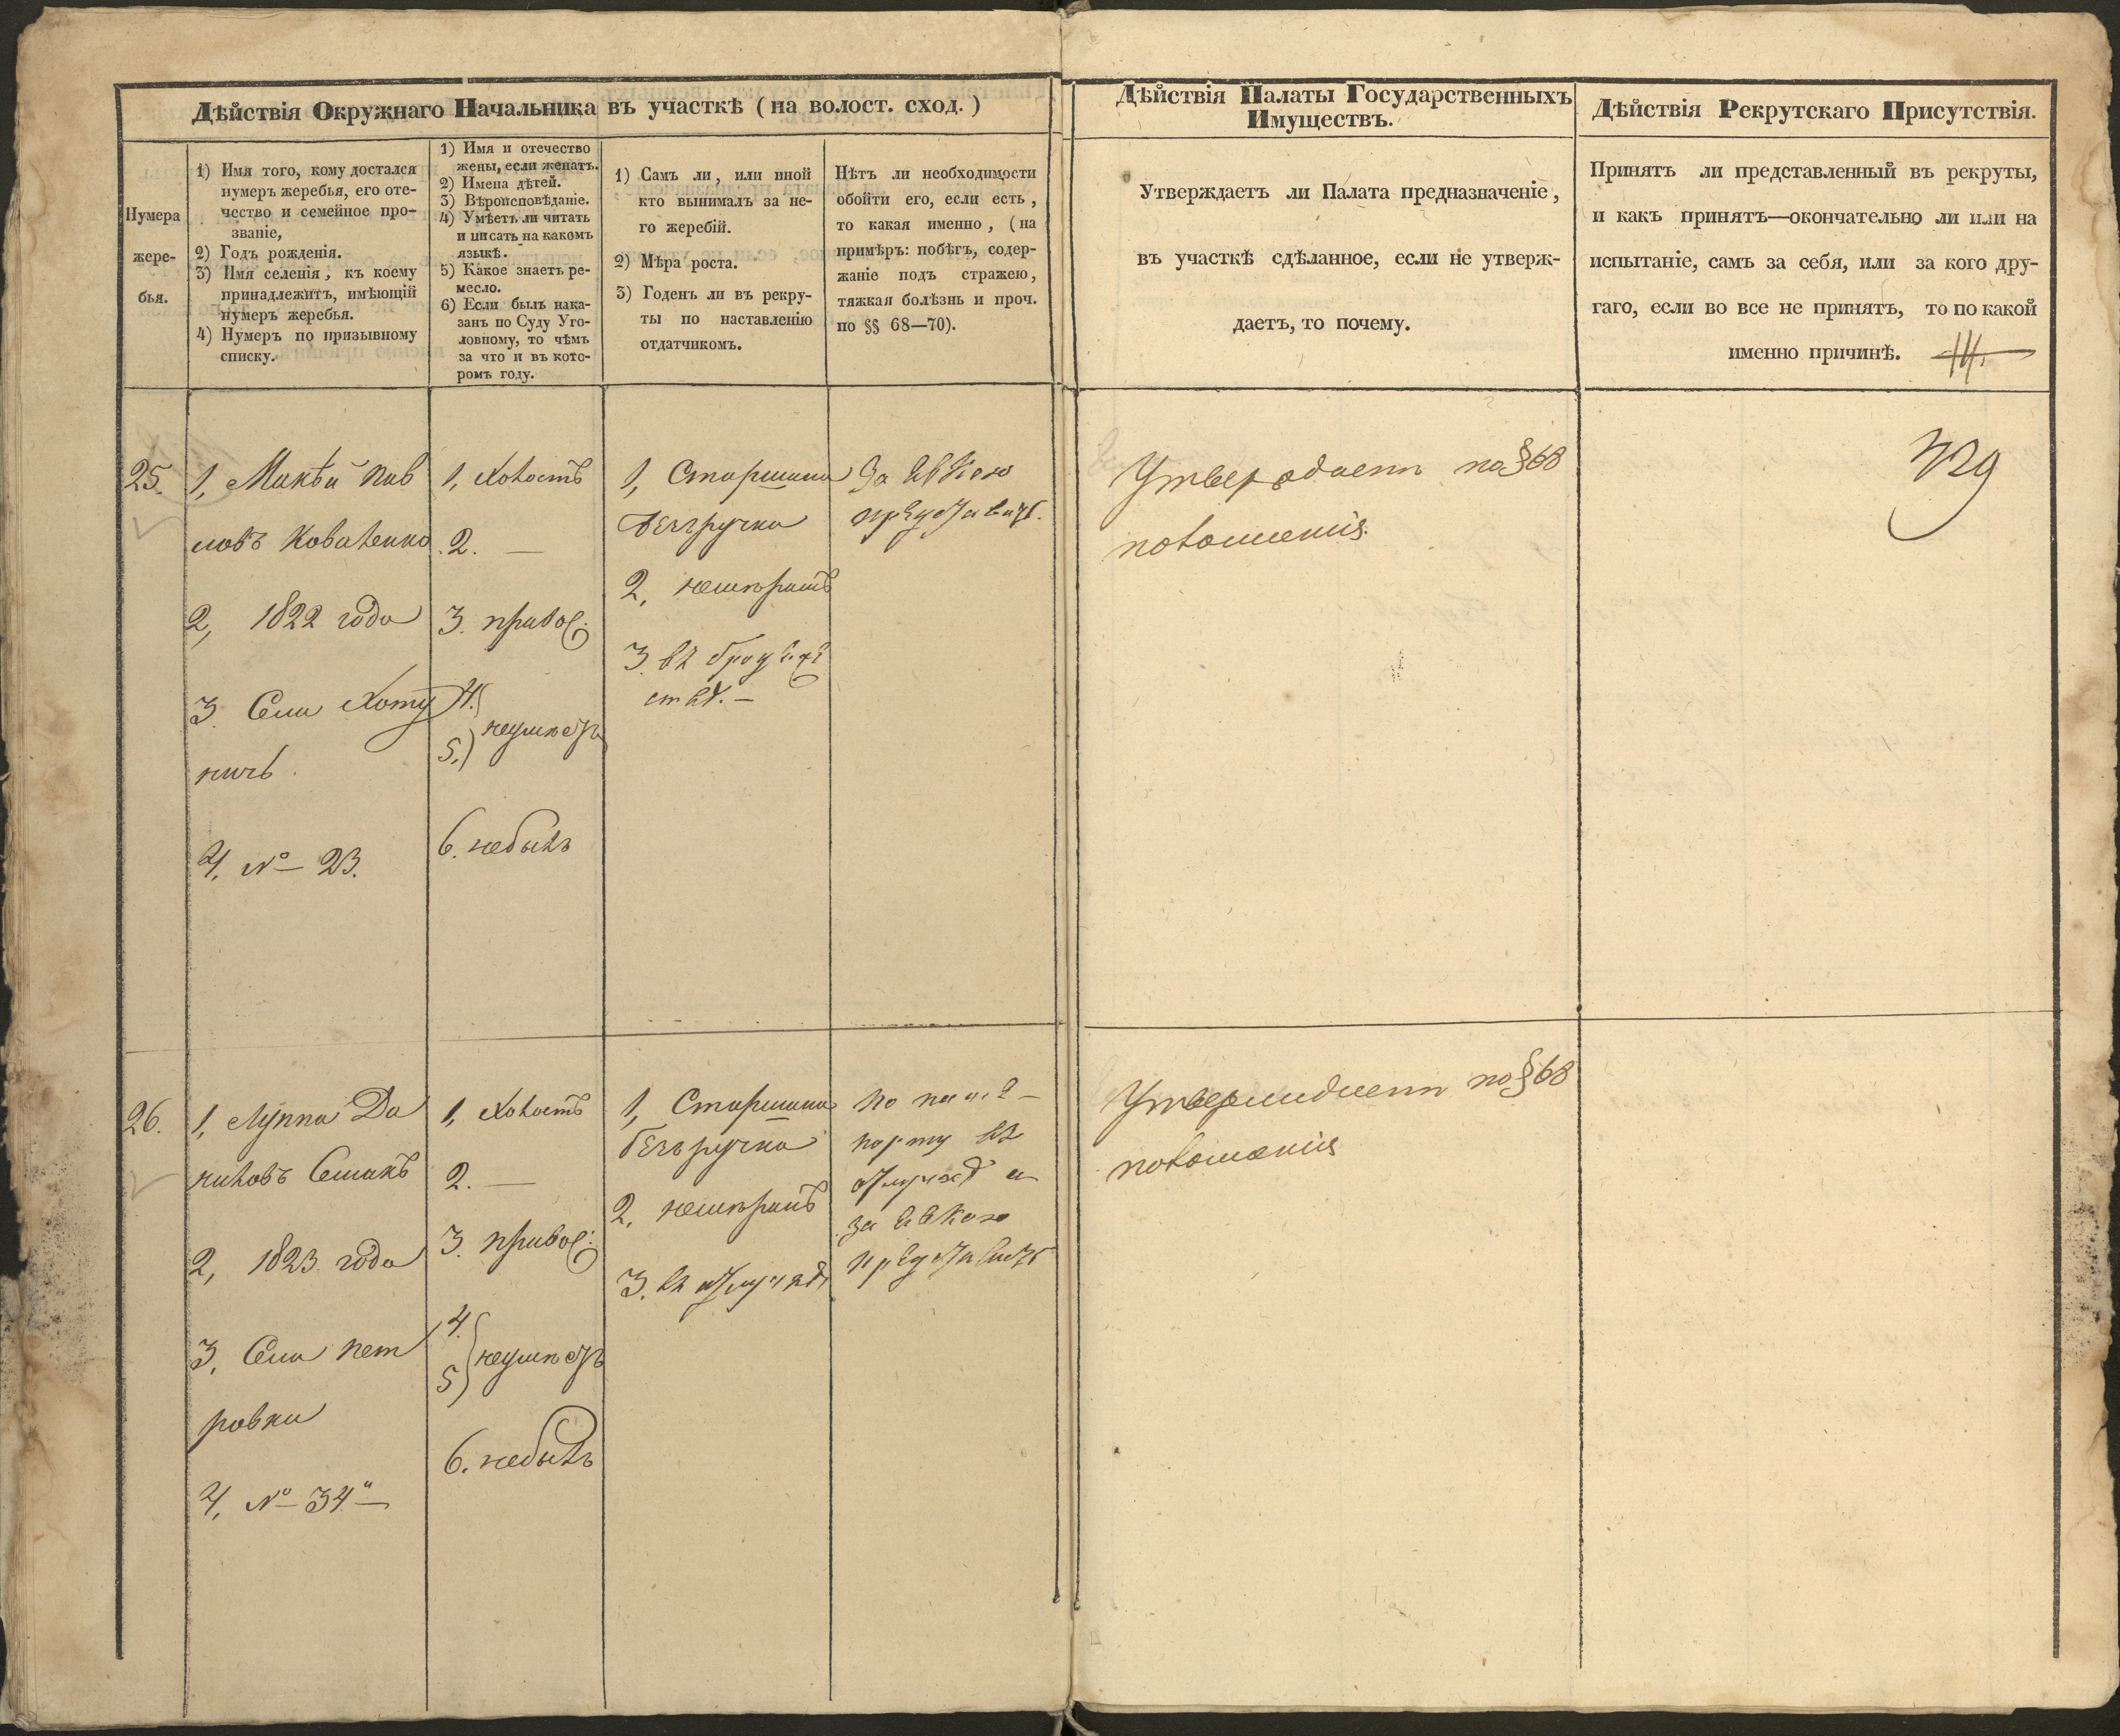 Дѣйствія Окружнаго Начальника въ участкѣ (на волост. сход.)
Нумера
жере-
бья.
1) Имя того, кому достался
нумеръ жеребья, его оте-
чество и семейное про-
званіе,
2) Годъ рожденія.
3) Имя селенія, къ коему
принадлежитъ, имѣющій
нумеръ жеребья.
4) Нумеръ по призывному
списку.
1) Имя и отечество
жены, если женатъ.
2) Имена дѣтей.
3) Вѣроисповѣданіе.
4) Умѣетъ ли читать
и писать на какомъ
языкѣ.
5) Какое знаетъ ре-
месло.
6) Если былъ нака-
занъ по Суду Уго-
ловному, то чѣмъ
за что и въ кото-
ромъ году.
1) Самъ ли, или иной
кто вынималъ за не-
го жеребій.
2) Мѣра роста.
3) Годенъ ли въ рекру-
ты по наставленію
отдатчикомъ.
Нѣтъ ли необходимости
обойти его, если есть,
то какая именно, (на
примѣръ: побѣгъ, содер-
жаніе подъ стражею,
тяжкая болѣзнь и проч.
по §§ 68—70).
Дѣйствія Палаты Государственныхъ
Имуществъ.
Утверждаетъ ли Палата предназначеніе,
въ участкѣ сдѣланное, если не утверж-
даетъ, то почему.
Дѣйствія Рекрутскаго Присутствія.
Принятъ ли представленный въ рекруты,
и какъ принятъ—окончательно ли или на
испытаніе, самъ за себя, или за кого дру-
гаго, если во все не принятъ, то по какой
именно причинѣ.
25.
1, Макѣй Пав
ловъ Коваленко
2, 1822 года
3. Села Хоту
ничь.
4, № 23.
1, Холостъ
2. —
3. правос:
4.
5.) неумѣетъ
6. небылъ
1, Старшина
Безручка
2, немѣранъ
3. въ
отд. —
За явкою
представить.
Утверждаетъ по § 68
положенія.
26.
1, Луппа Да
ниловъ Семакъ
2, 1823 года
3, Села Пет
ровки
4, № 34 —
1, Холостъ
2. —
3. правос:
4.
5) неумѣетъ
6. небылъ
1, Старшина
безъручка
2, немѣранъ
3. въ отлучкѣ
по паше-
порту въ
отлучкѣ и
за явкою
представить
Утверждаетъ по § 68
положенія